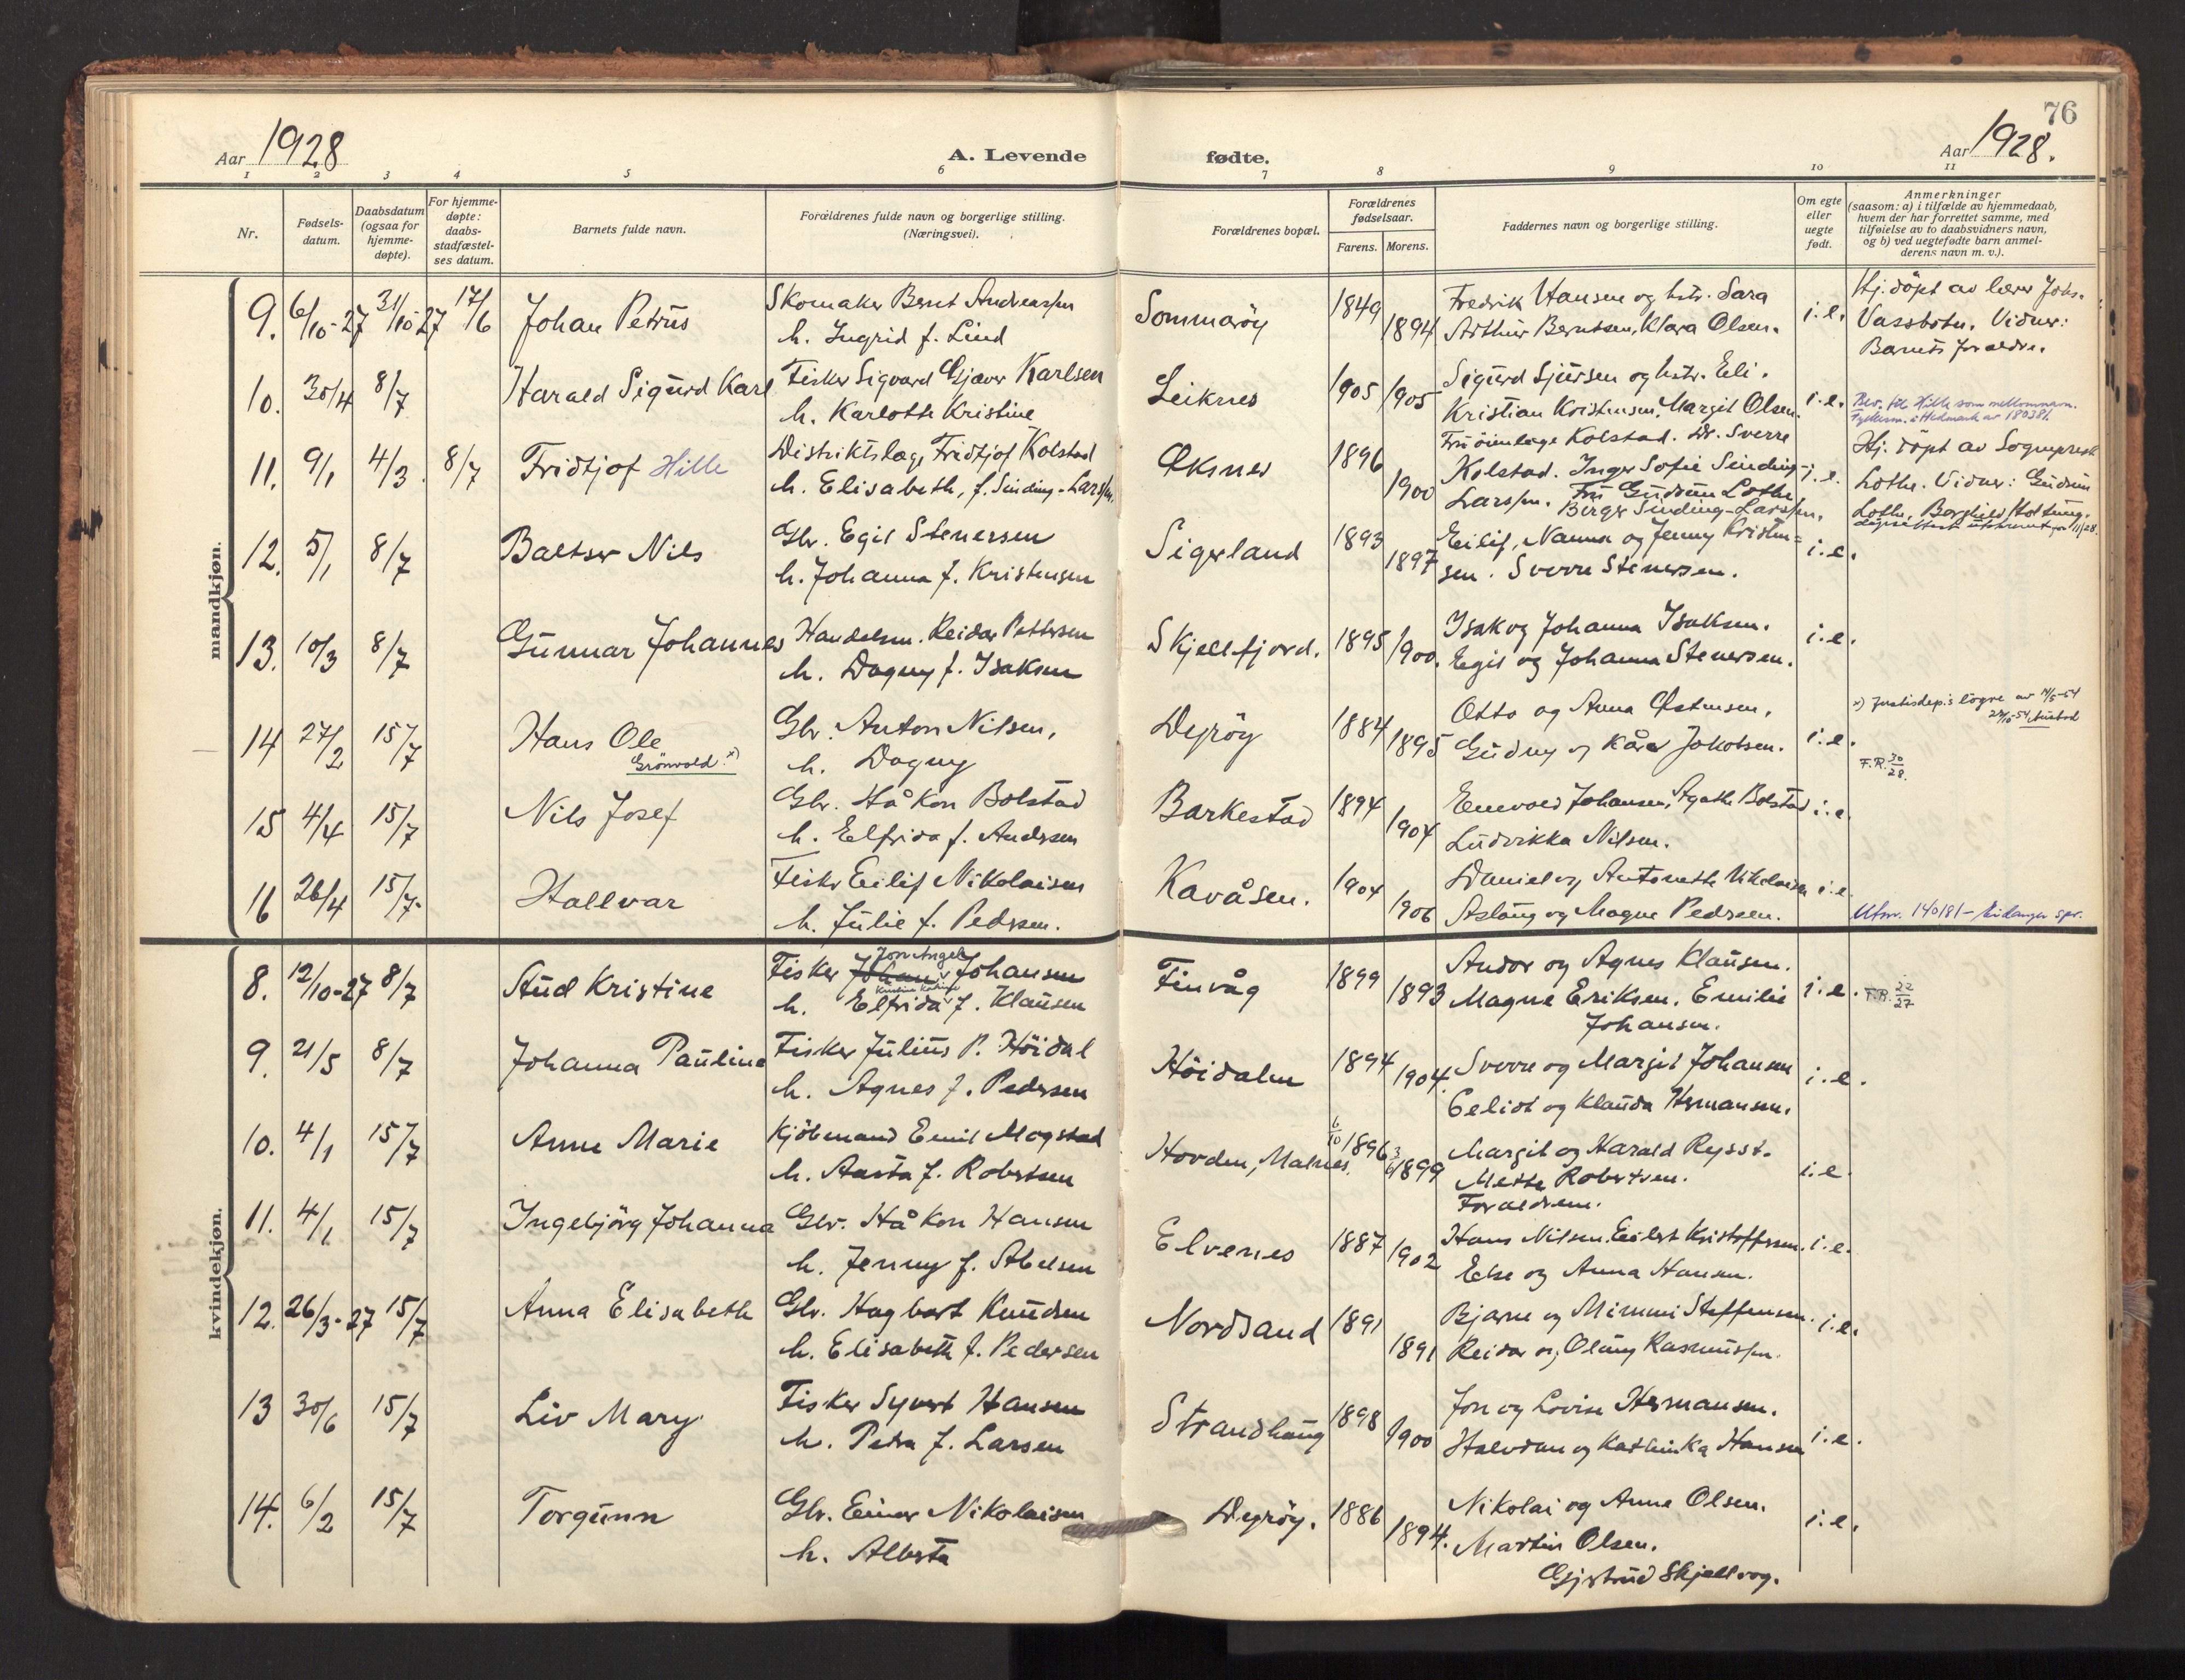 76
Aar 1928
A. Levende
fødte.
Aar 1928.
1 2 3 4 5 6 7 8 9 10 11
Nr.
Fødsels-
datum.
Daabsdatum
(ogsaa for
hjemme-
døpte).
For hjemme-
døpte:
daabs-
stadfæstel-
ses datum.
Barnets fulde navn.
Forældrenes fulde navn og borgerlige stilling.
(Næringsvei).
Forældrenes bopæl.
Forældrenes
fødselsaar.
Farens. Morens.
Faddernes navn og borgerlige stilling.
Om egte
eller
uegte
født.
Anmerkninger
(saasom: a) i tilfælde av hjemmedaab,
hvem der har forrettet samme, med
tilføielse av to daabsvidners navn,
og b) ved uegtefødte barn anmel-
derens navn m. v.).
mandkjøn.
9. 6/10-27 31/10-27 17/6 Johan Petrus
Skomaker Bernt Andreassen
h. Ingrid f. Lind
Sommarøy 1849 1894
Fredrik Hansen og hstr. Sara
Arthur Berntsen, Klara Olsen.
i.e.
Hj.döpt av lærer Johs.
Vassbotn. Vidner:
Barnets foraldre.
10. 30/4 8/7 Harald Sigurd Karl
Fisker Sigvard Gjæver Karlsen
h. Karlotte Kristine
Leiknes 1905 1905
Sigurd Sjursen og hstr. Eli.
Kristian Kristensen, Margit Olsen.
i.e.
Bev. til Hille som mellomnavn.
Fylkesm. i Hedmark av 180381.
11. 9/1 4/3. 8/7 Fridtjof Hille
Distriktslæge Fridtjof Kolstad
h. Elisabeth, f. Sinding-Larssen
Øksnes 1896 1900
Fru öienlæge Kolstad. Dr. Sverre
Kolstad. Inger Sofie Sinding-
Larssen. Fru Gudrun Lothe
Birger Sinding-Larssen.
i.e.
Hj. döpt av Sogneprest
Lothe. Vidner: Gudrun
Lothe, Borghild Holtung.
12. 5/1 8/7 Baltser Nils
Gbr. Egil Stenersen
h. Johanna f. Kristensen
Sigerland 1893 1897
Eilif, Nanna og Jenny Kristen=
sen. Sverre Stenersen.
i.e.
13. 10/3 8/7 Gunnar Johannes
Handelsm. Reidar Pettersen
h. Dagny f. Isaksen
Skjellfjord. 1895 1900.
Isak og Johanna Isaksen.
Egil og Johanna Stenersen.
i.e.
14 27/2 15/7 Hans Ole
Grønvold x)
Gbr. Anton Nilsen,
h. Dagny
Dyrøy 1884 1895
Otto og Anna Østensen,
Gudny og Kåre Jakobsen.
i.e.
x) Justisdep.s løyve av 14/5-54
F.R. 30/28.
15 4/4 15/7 Nils Josef
Gbr. Håkon Bolstad
h. Elfrida f. Andersen
Barkestad 1894 1904
Enevold Johansen, Agathe Bolstad
Ludvikka Nilsen.
i.e.
16 26/4 15/7. Hallvar
Fisker Eilif Nikolaisen
h. Julie f. Pedersen.
Kavåsen. 1904 1906
Daniel og Antonette Nikolaisen
Aslaug og Magne Pedersen.
i.e.
Utskr. 140181 - Eidanger spr.
kvindekjøn.
8. 12/10-27 8/7 Aud Kristine
Jon Angel
Fisker Johan Johansen
h. Elfrida f. Klausen
Finvåg 1899 1893
Andor og Agnes Klausen.
Magne Eriksen. Emilie
Johansen.
i.e.
F.R. 22/27
9. 21/5 8/7 Johanna Pauline
Fisker Julius P. Höidal
h. Agnes f. Pedersen
Höidalen 1894 1904.
Sverre og Margit Johansen
Celidt og Klauda Hermansen.
i.e.
10. 4/1 15/7 Anne Marie
Kjöbmand Emil Mogstad
h. Aasta f. Robertsen
Hovden, Malnes. 6/10 1896 3/6 1899
Margit og Harald Rysst.
Mette Robertsen.
Foraldrene.
i.e.
11. 4/1 15/7 Ingebjörg Johanna
Gbr. Håkon Hansen
h. Jenny f. Abelsen
Elvenes 1887 1902
Hans Nilsen. Eilert Kristoffersen.
Else og Anna Hansen.
i.e.
12. 26/3-27 15/7 Anna Elisabeth
Gbr. Hagbart Knudsen
h. Elisabeth f. Pedersen
Nordsand 1891 1891
Bjarne og Mimmi Steffensen.
Reidar og Olaug Rasmussen.
i.e.
13 30/6 15/7 Liv Mary
Fisker Syvert Hansen
h. Petra f. Larsen
Strandhaug 1898 1900
Jon og Lovise Hermansen.
Halvdan og Kathinka Hansen
i.e.
14. 6/2 15/7 Torgunn
Gbr. Einar Nikolaisen
h. Alberta
Dyrøy. 1886 1894.
Nikolai og Anna Olsen.
Martin Olsen.
Gjertrud Skjellvog.
i.e.